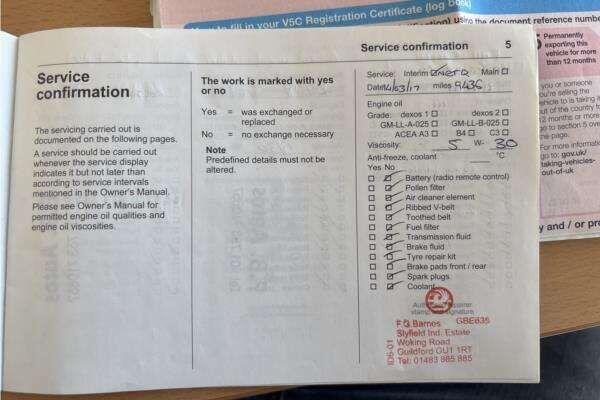 How to fill in your V5C Registration Certificate (log book)
using the document reference number
Permanently
exporting this
vehicle for more
than 12 months
Service confirmation 5
Service
confirmation
The servicing carried out is
documented on the following pages.
A service should be carried out
whenever the service display
indicates it but not later than
according to service intervals
mentioned in the Owner's Manual.
Please see Owner's Manual for
permitted engine oil qualities and
engine oil viscosities.
The work is marked with yes
or no
Yes = was exchanged or
replaced
No = no exchange necessary
Note
Predefined details must not be
altered.
Service: Interim Main
Date 14/03/17 miles 9436
Engine oil
Grade: dexos 1 dexos 2
GM-LL-A-025 GM-LL-B-025
ACEA A3 B4 C3
Viscosity: 5 W- 30
Anti-freeze, coolant °C
Yes No
Battery (radio remote control)
Pollen filter
Air cleaner element
Ribbed V-belt
Toothed belt
Fuel filter
Transmission fluid
Brake fluid
Tyre repair kit
Brake pads front / rear
Spark plugs
Coolant
stamp and signature
F.G.Barnes GBE635
Slyfield Ind. Estate
Woking Road
Guildford GU1 1RT
Tel: 01483 865 885
you or someone
you're selling the
vehicle to is taking it
out of the country for
12 months or more
go to section 5 over
the page.
For more information
go to: gov.uk/
taking-vehicles-
out-of-uk
y and / or pro